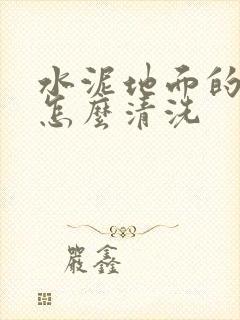 水泥地面的
怎麼清洗
嚴鑫